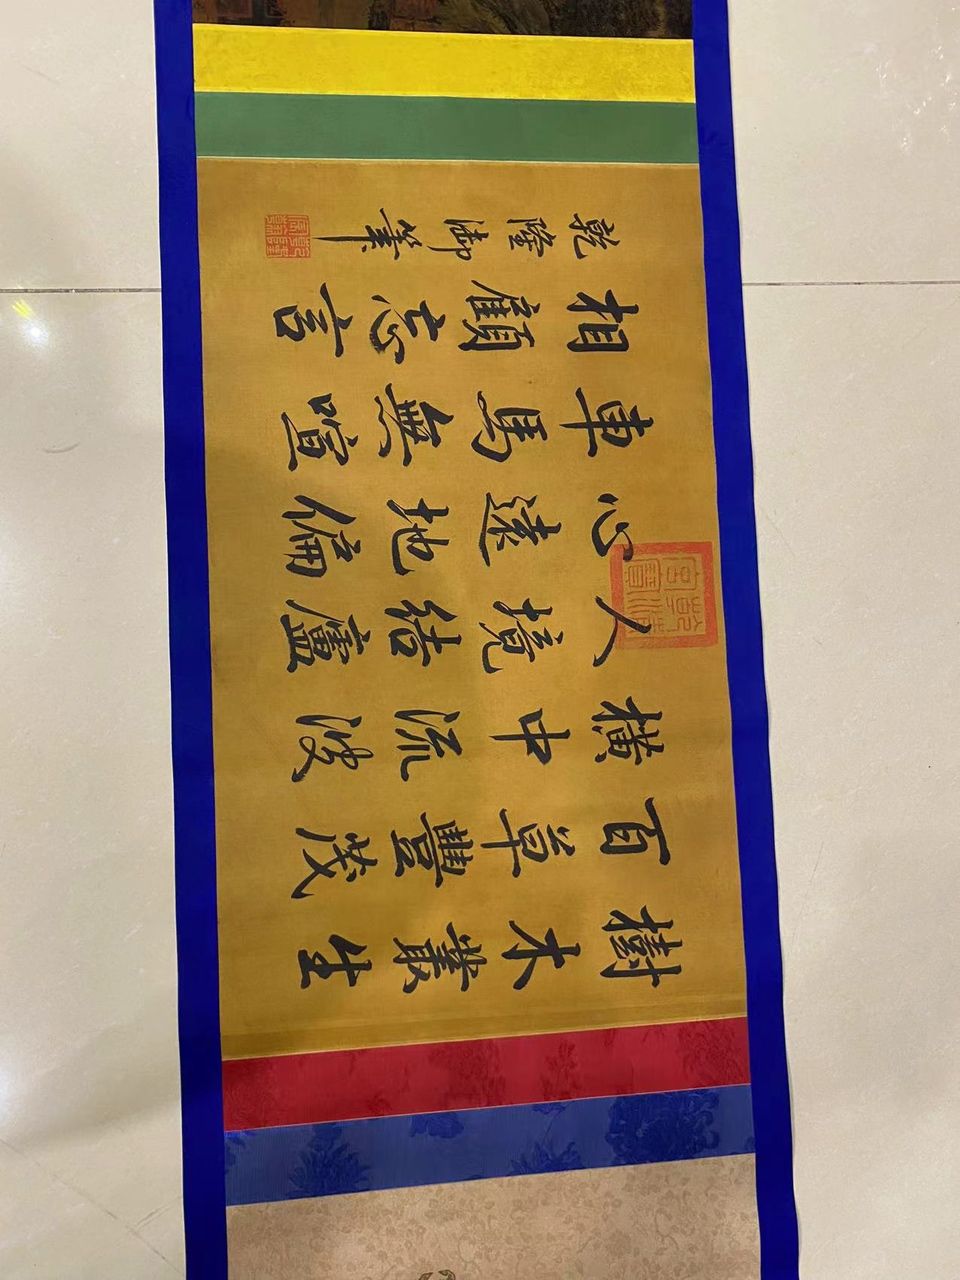 樹木叢生
百草豐茂
橫中流波
人境結廬
心遠地偏
車馬無喧
相顧忘言
乾隆御筆